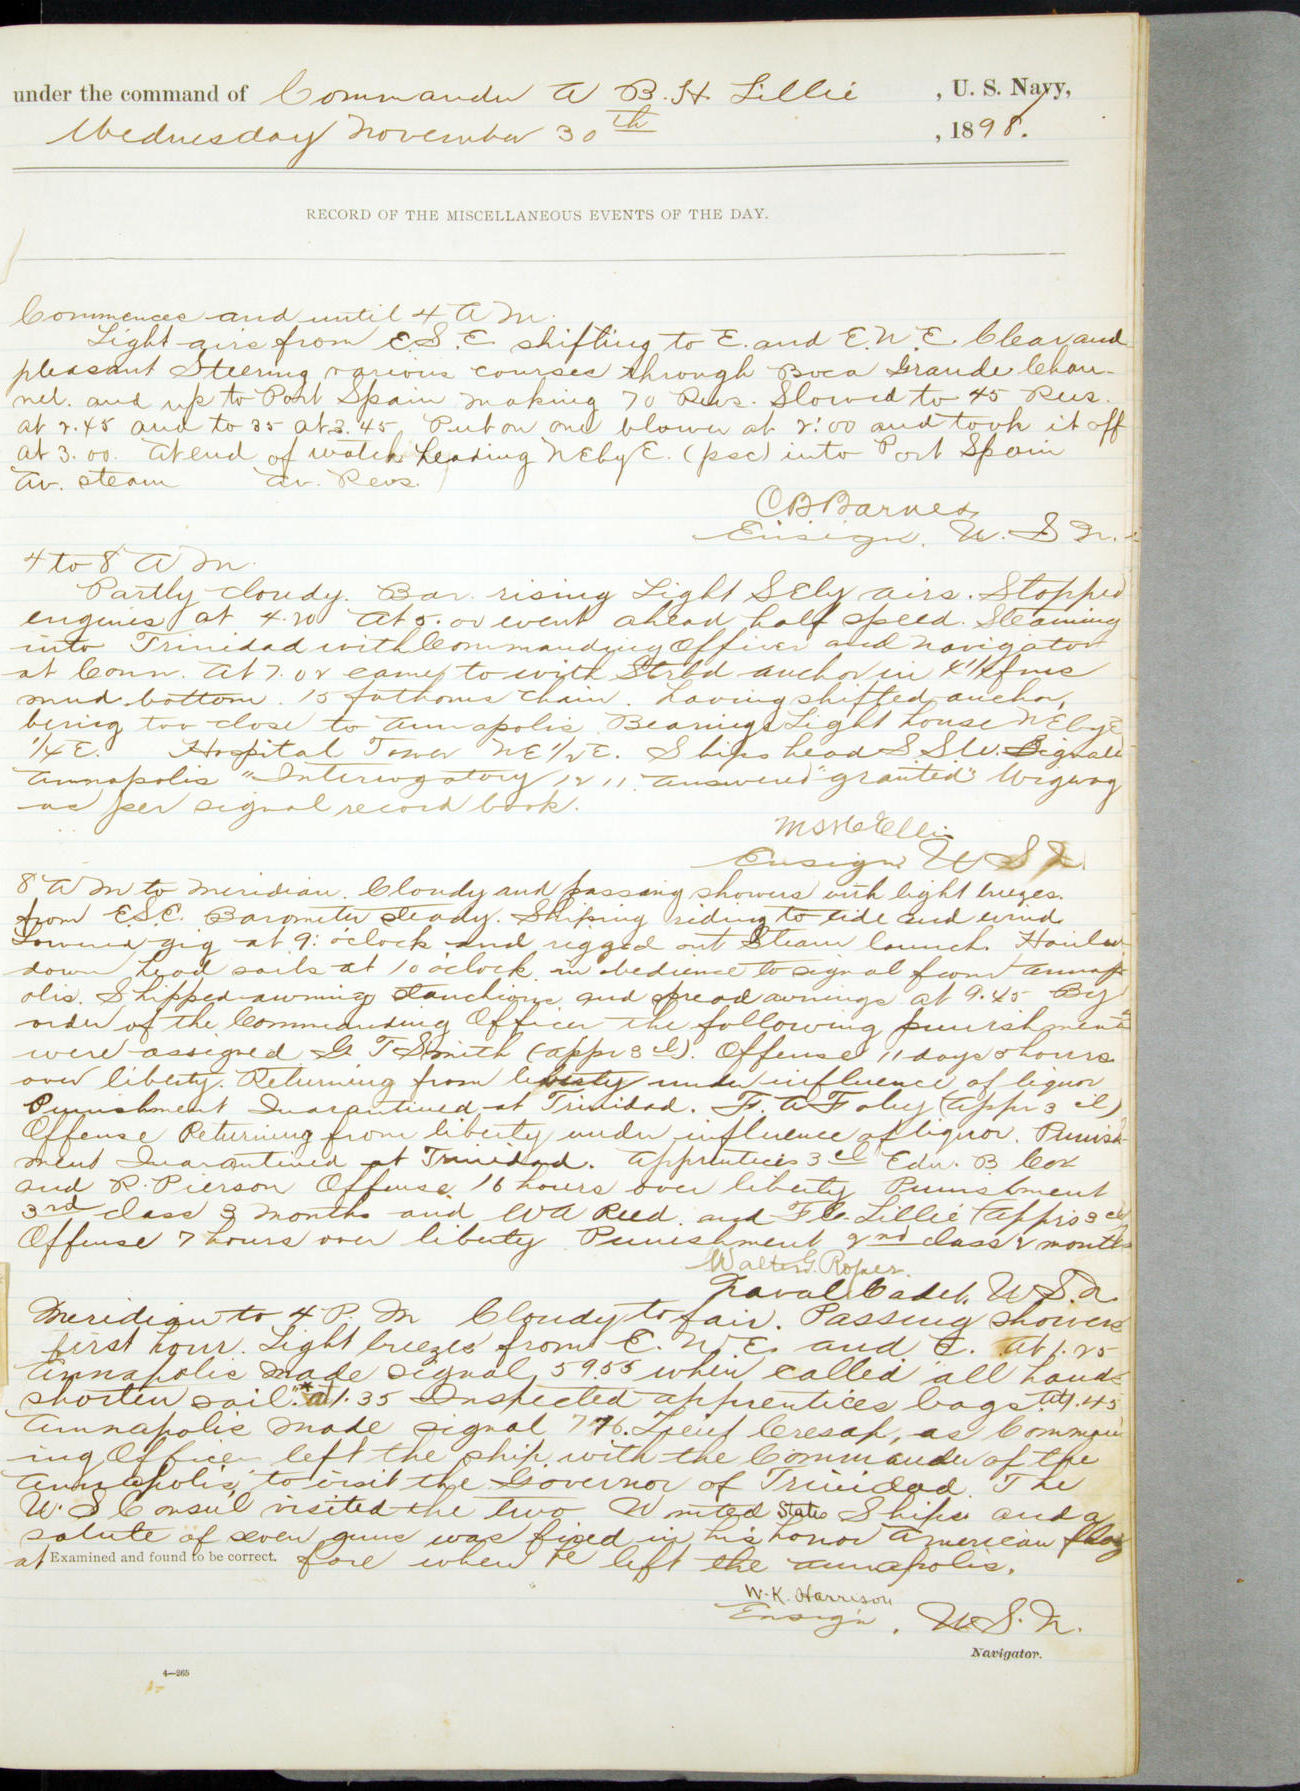 under the command of Commander A B. H. Lillie, U. S. Navy,
Wednesday November 30th, 1898.
RECORD OF THE MISCELLANEOUS EVENTS OF THE DAY.
Commences and until 4 A M.
Light airs from E.S.E shifting to E. and E.N.E. Clear and
pleasant Steering various courses through Boca Grande Chan-
nel. and up to Port Spain making 70 Revs. Slowed to 45 Revs.
at 2.45 and to 35 at 3.45, Put on one blower at 2:00 and took it off
at 3.00. At end of watch heading NEbyE. (psc) into Port Spain
Av. steam Av. Revs.
C B Barnes
Ensign, U. S N.
4 to 8 A M.
Partly cloudy. Bar. rising Light SEly airs. Stopped
engines at 4.20 At 5.00 went ahead half speed. Steaming
into Trinidad with Commanding Officer and navigator
at Conn. At 7.02 came to with Strb'd anchor in 4 1/2 fms
mud bottom. 15 fathoms chain. having shifted anchor,
being too close to Annapolis. Bearings Light house NEbyE
1/4 E. Hospital Tower NE 1/2 E. Ships head S SW. Signals
Annapolis "Interrogatory 1211. answered "granted" Wigwag
as per signal record book.
M St C Ellis
Ensign U S N.
8 A M to Meridian. Cloudy and passing showers with light breezes.
from E.S.E. Barometer steady. Shiping riding to tide and wind
Lowered gig at 9: o'clock and rigged out Steam launch. Hauled
down head sails at 10 o'clock in obedience to signal from Annap
olis. Shipped awning stanchions and spread awnings at 9.45 By
order of the Commanding Officer the following punishments
were assigned G T Smith (appr 3 cl). Offense 11 days 5 hours
over liberty. Returning from liberty under influence of liquor
Punishment Quarantined at Trinidad. F. A Foley (appr 3 cl)
Offense Returning from liberty under influence of liquor. Punish-
ment Quarantined at Trinidad. Apprentices 3 cl Edw. B Cox
and R. Pierson Offense 16 hours over liberty Punishment
3rd class 3 months and W A Reed. and F C. Lillie (apprs 3 cl)
Offense 7 hours over liberty Punishment 2nd class 2 months
Walter G. Roper.
Naval Cadet, U.S.N.
Meridian to 4 P. M Cloudy to fair. Passing showers
first hour. Light breezes from E. N.E. and E. At 1.25
Annapolis made signal 5955 when called "all hands
shorten sail." at 1.35 Inspected apprentices bags. At 1.45
Annapolis made signal 776. Lieut Cresap, as Comman
ing Officer left the ship with the Commander of the
Annapolis, to visit the Governor of Trinidad. The
U. S Consul visited the two United States Ships and a
salute of seven guns was fired in his honor American flag
at fore when he left the Annapolis.
Examined and found to be correct.
W. K. Harrison
Ensign, U.S.N.
Navigator.
4—265